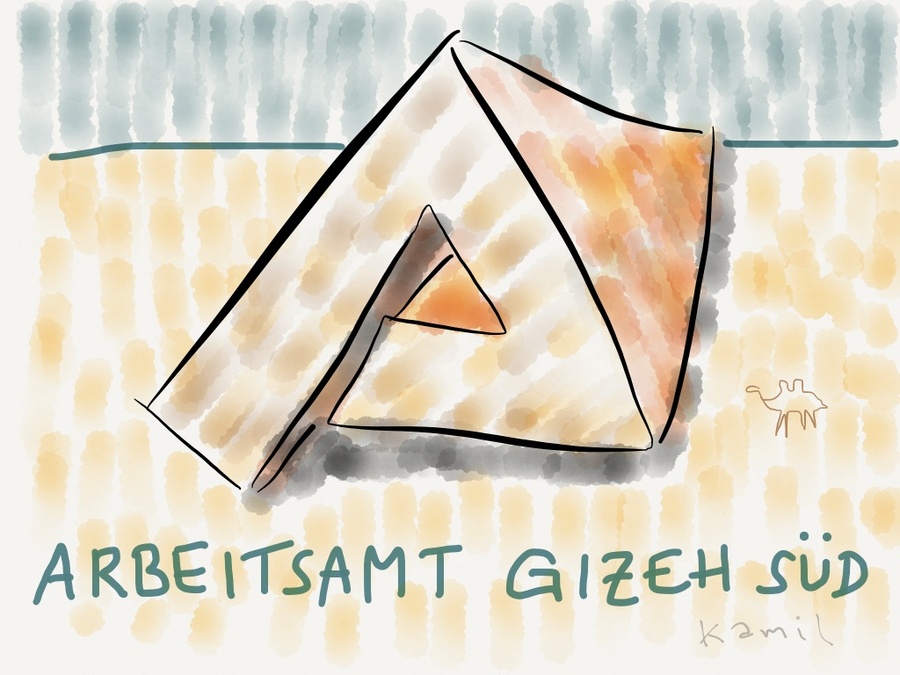 ARBEITSAMT GIZEH SÜD
Kamil